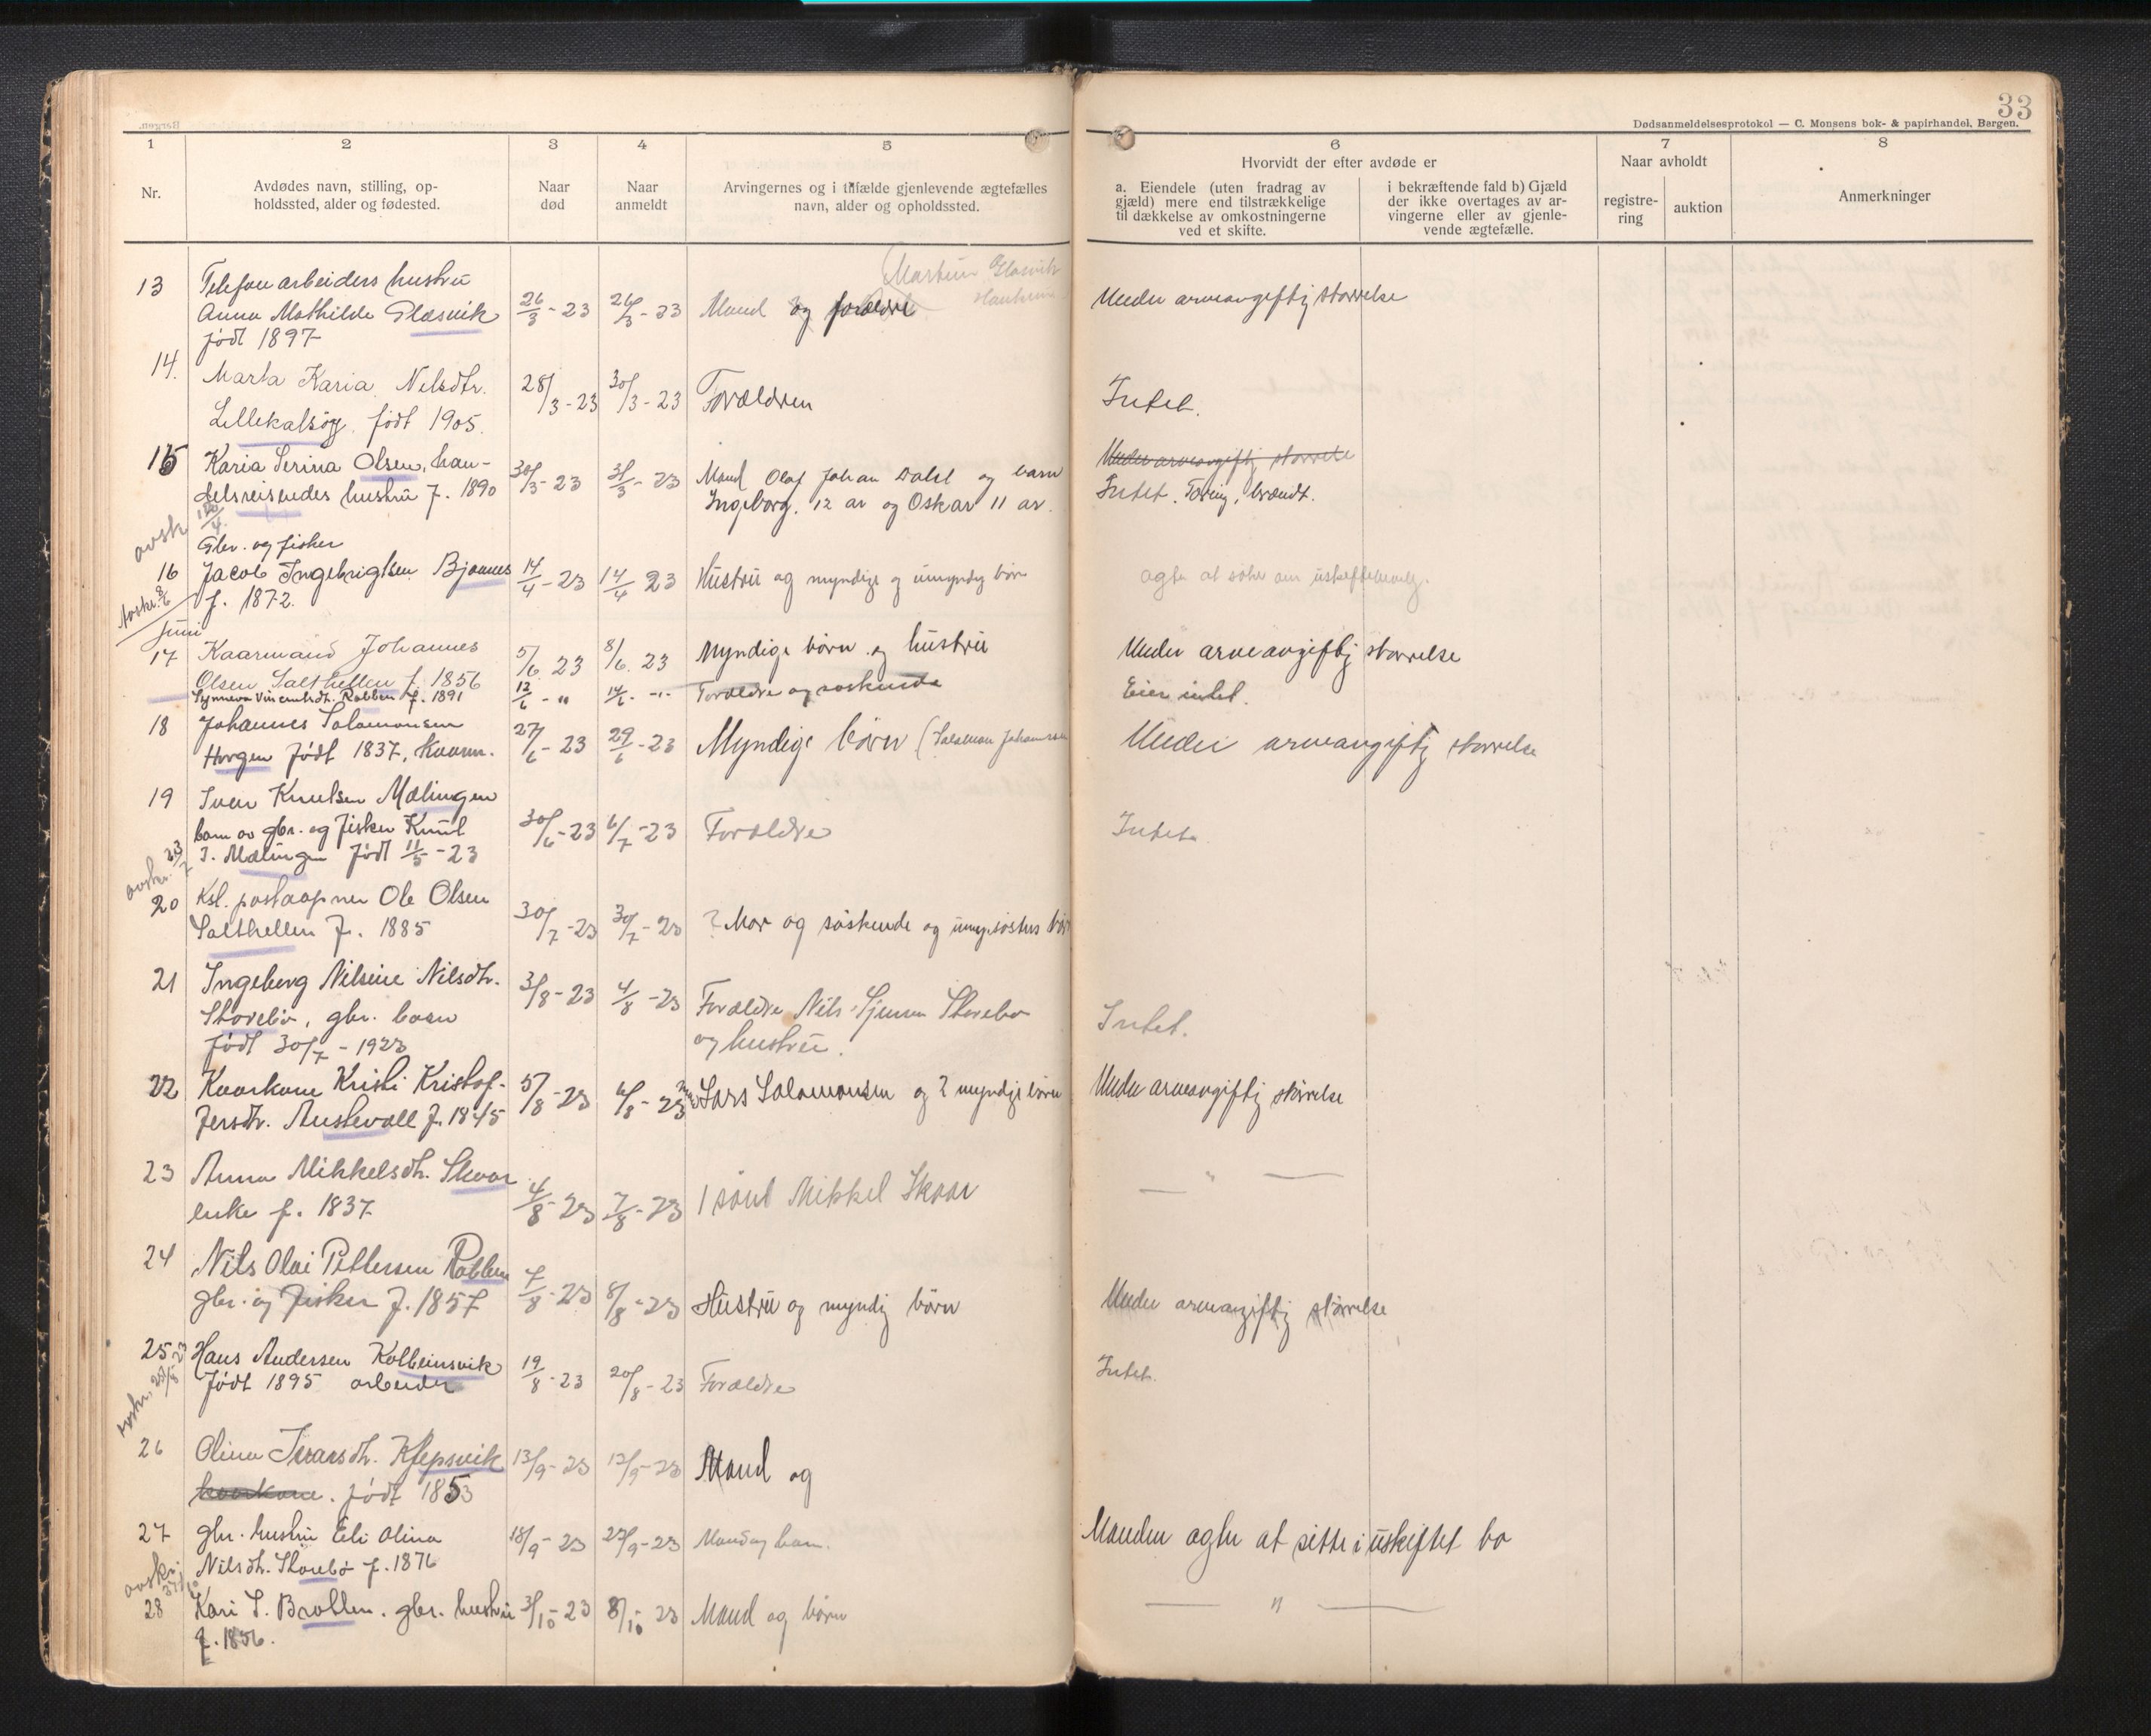 33
Dødsanmeldelsesprotokol — C. Monsens bok- & papirhandel, Bergen.
1 2 3 4 5 6 7 8
Nr.
Avdødes navn, stilling, op-
holdssted, alder og fødested.
Naar
død
Naar
anmeldt
Arvingernes og i tilfælde gjenlevende ægtefælles
navn, alder og opholdssted.
Hvorvidt der efter avdøde er
a. Eiendele (uten fradrag av
gjæld) mere end tilstrækkelige
til dækkelse av omkostningerne
ved et skifte.
i bekræftende fald b) Gjæld
der ikke overtages av ar-
vingerne eller av gjenle-
vende ægtefælle.
Naar avholdt
registre-
ring
auktion
Anmerkninger
13 Telefonarbeiders hustru
Anna Mathilde Glæsvik
født 1897
26/3-23 26/3-23
Martin Glæsvik
Mand og forældre
Under arveavgiftg størrelse
14. Marta Karia Nilsdtr.
Lillekalsøy, født 1905.
28/3-23 30/3-23 Forældren
Intet.
15 Karia Serina Olsen, han-
delsreisendes hustru f. 1890
30/3-23 31/3-23 Mand Olaf Johan Dahl og barn
Ingeborg, 12 ar og Oskar 11 ar.
Under arveavgiftg størrelse
Intet. Foring, brændt.
avskr
Gbr. og fisker
16 Jacob Ingebrigtsen Bjønnes
f. 1872.
14/4-23 14/4 23 Hustru og myndige og umyndig børn
agter at søke om uskiftebevilg.
Avskr. 2/6
Juni
17 Kaarmand Johannes
Olsen Salthellen f. 1856
5/6 23 8/6 23 Myndige børn og hustru
Under arveavgiftg størrelse
Synneva Vincentsdt. Rabben f. 1891
12/6 - " 14/6 - " Forældre og søskende
Eier intet.
18 Johannes Salamonsen
Horgen født 1837, Kaarm.
27/6-23 29/6-23 Myndige børn (Salamon Johannssen
Under arveavgiftg størrelse
19 Ivar Knutsen Mælingen
barn av gbr. og fisker Knut
I. Mælingen født 11/5-23
30/6-23 6/7-23 Forældre
Intet.
avskr. 23/7
20 Ksl. postaapner Ole Olsen
Salthellen f. 1885
30/7-23 30/7-23 ? Mor og søskende og umy. søsters børn
21 Ingeborg Nilsine Nilsdtr.
Storebø, gbr. barn
født 30/7-1923
3/8-23 4/8-23 Forældre Nils Sjursen Storebø
og hustru.
Intet.
22 Kaarkone Kristi Kristof-
fersdtr. Austevoll f. 1845
5/8-23 6/8-23 Lars Salamonsen og 2 myndige børn
Under arveavgiftg størrelse
23 Anna Mikkelsdtr. Skaar
enke f. 1837
4/8-23 7/8-23 1 søn Mikkel Skaar
— " —
24 Nils Olai Pettersen Rabben
gbr. og fisker f. 1857
7/8-23 8/8-23 Hustru og myndig børn
Under arveavgiftg størrelse
25 Hans Andersen Kolbeinsvik
født 1895 arbeider
19/8-23 20/8-23 Forældre
Intet.
26 Olina Ivarsdtr. Kleppsvik
kaarkone. født 1853
13/9-23 13/9-23 Mand og
27 gbr. hustru Eli Olina
Nilsdtr. Storebø f. 1876
18/9-23 27/9-23 Mand og barn.
Manden agter at sitte i uskiftet bo
avskr.
28 Kari S. Bratten. gbr. hustru
f. 1856.
3/10-23 8/10-23 Mand og børn
— " —